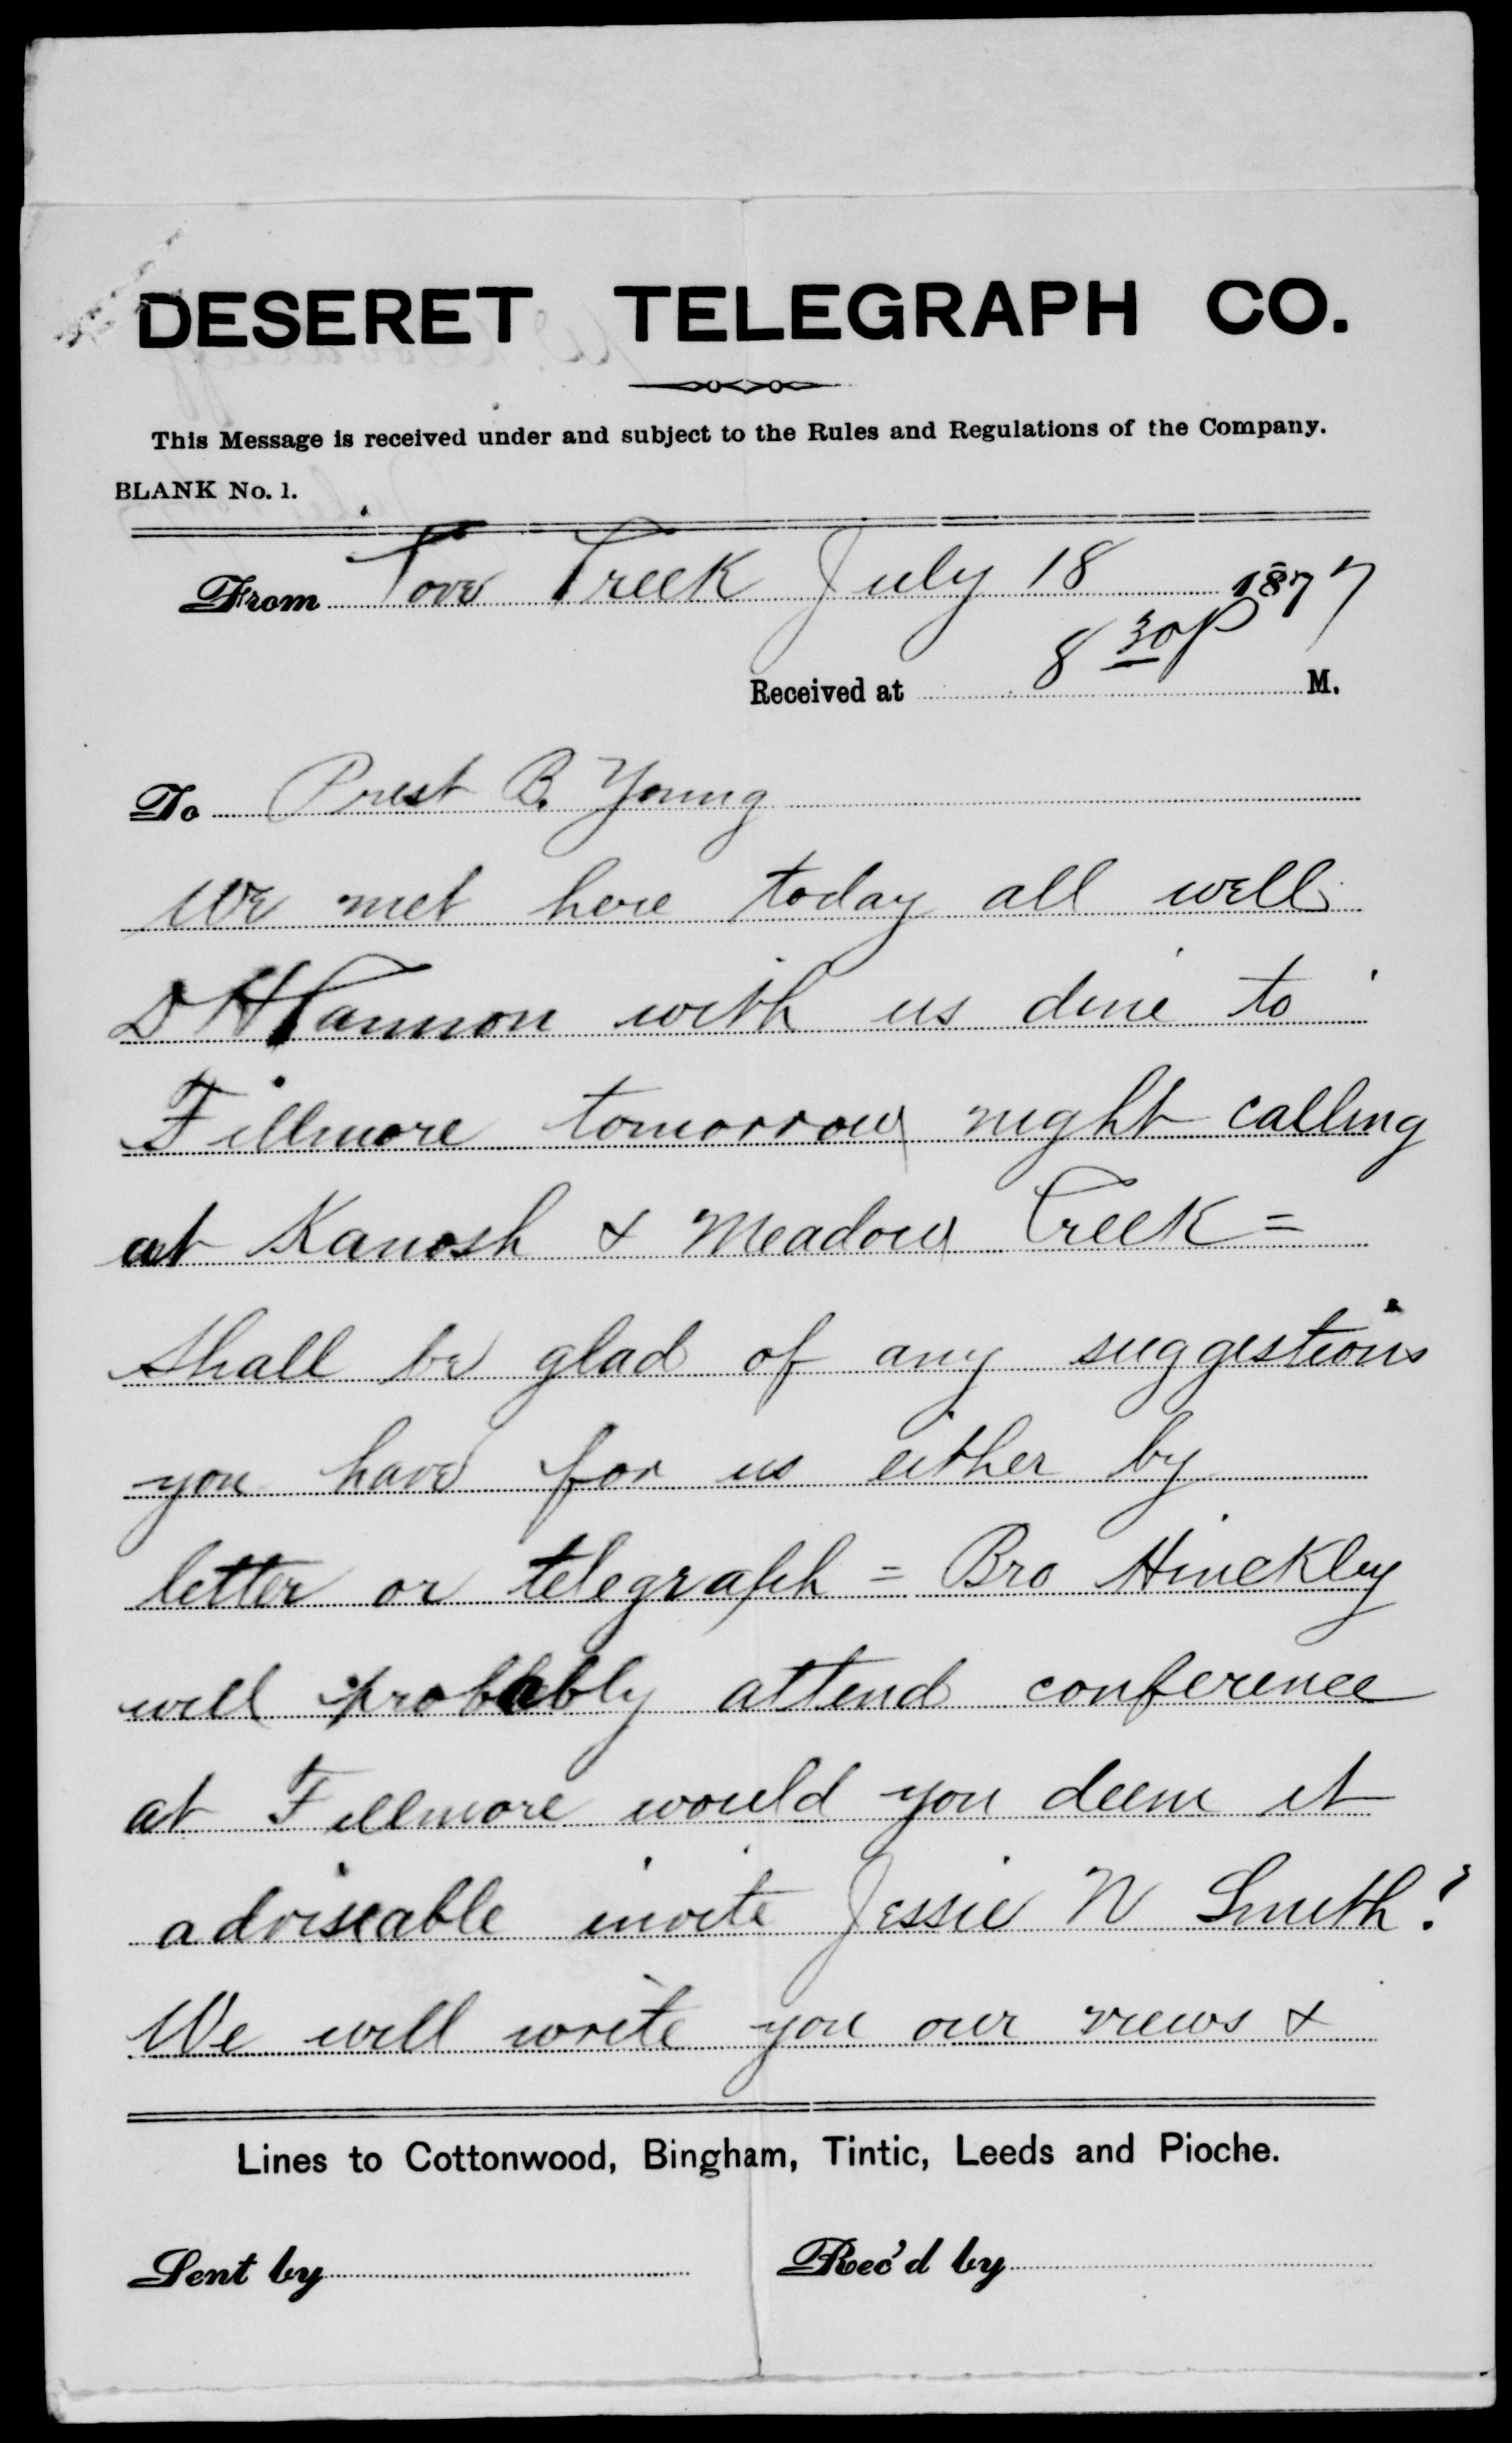 DESERET TELEGRAPH CO.
This Message is received under and subject to the Rules and Regulations of the Company.
BLANK No. 1.
From Cove Creek July 18 1877
Received at 8 30 P M.
To Prest B. Young
We met here today all well
D H Cannon with us dine to
Fillmore tomorrow night calling
at Kanosh & Meadow Creek =
shall be glad of any suggestions
you have for us either by
letter or telegraph = Bro Hinckley
will probably attend conference
at Fillmore would you deem it
adviseable invite Jessie N Smith?
We will write you our views &
Lines to Cottonwood, Bingham, Tintic, Leeds and Pioche.
Sent by Rec'd by